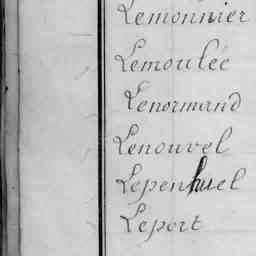 Lemonnier
Lemoulec
Lenormand
Lenouvel
Lepenhuel
Leport